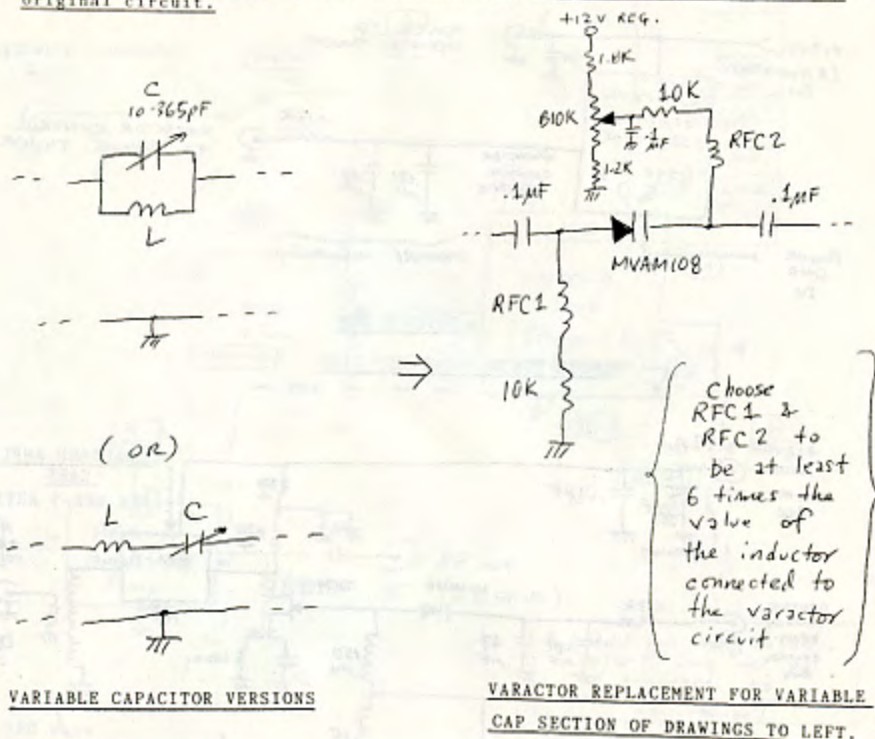 original circuit.
C
10-365pF
L
(OR)
L C
VARIABLE CAPACITOR VERSIONS
+12V REG.
1.8K
10K
.1µF
RFC2
1.2K
.1µF
.1µF
MVAM108
RFC1
10K
Choose
RFC1 &
RFC2 to
be at least
6 times the
value of
the inductor
connected to
the varactor
circuit
VARACTOR REPLACEMENT FOR VARIABLE
CAP SECTION OF DRAWINGS TO LEFT.